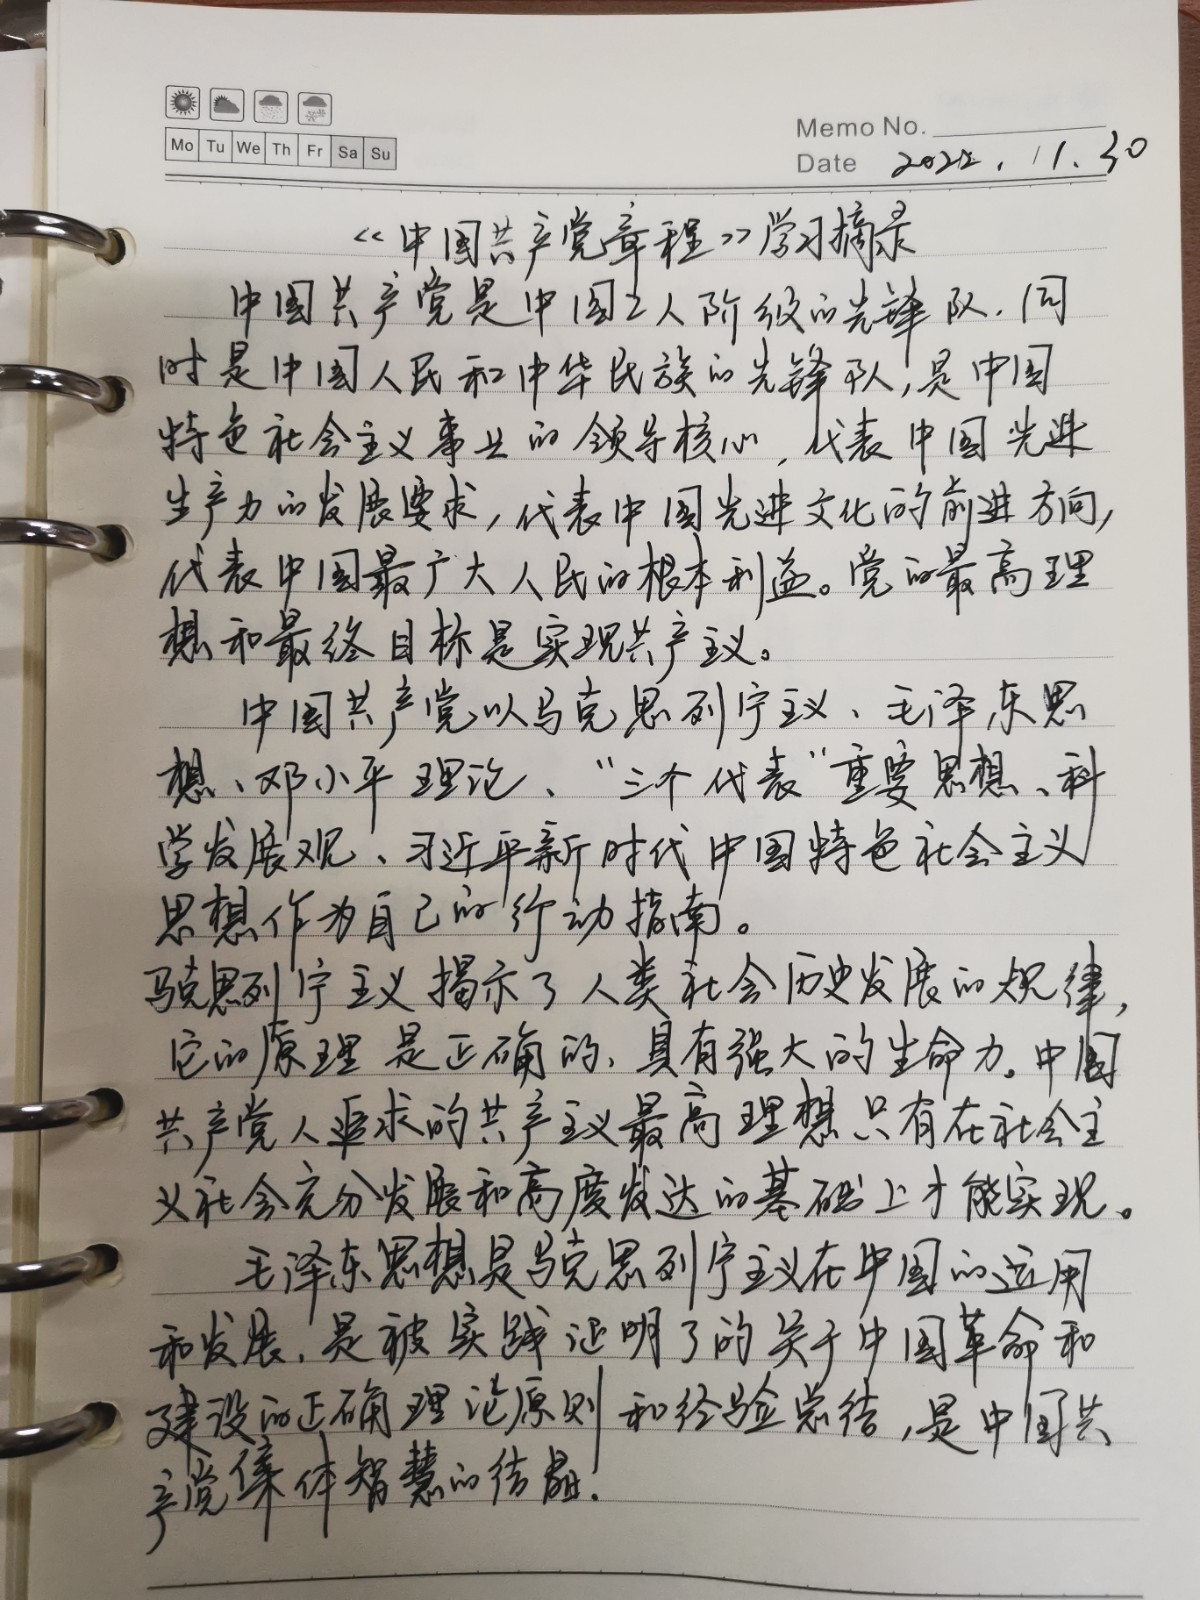 Mo Tu We Th Fr Sa Su
Memo No.
Date 2022.11.30
《中国共产党章程》学习摘录
中国共产党是中国工人阶级的先锋队，同
时是中国人民和中华民族的先锋队，是中国
特色社会主义事业的领导核心，代表中国先进
生产力的发展要求，代表中国先进文化的前进方向，
代表中国最广大人民的根本利益。党的最高理
想和最终目标是实现共产主义。
中国共产党以马克思列宁主义、毛泽东思
想、邓小平理论、“三个代表”重要思想、科
学发展观、习近平新时代中国特色社会主义
思想作为自己的行动指南。
马克思列宁主义揭示了人类社会历史发展的规律，
它的原理是正确的，具有强大的生命力。中国
共产党人追求的共产主义最高理想只有在社会主
义社会充分发展和高度发达的基础上才能实现。
毛泽东思想是马克思列宁主义在中国的运用
和发展，是被实践证明了的关于中国革命和
建设的正确理论原则和经验总结，是中国共
产党集体智慧的结晶.